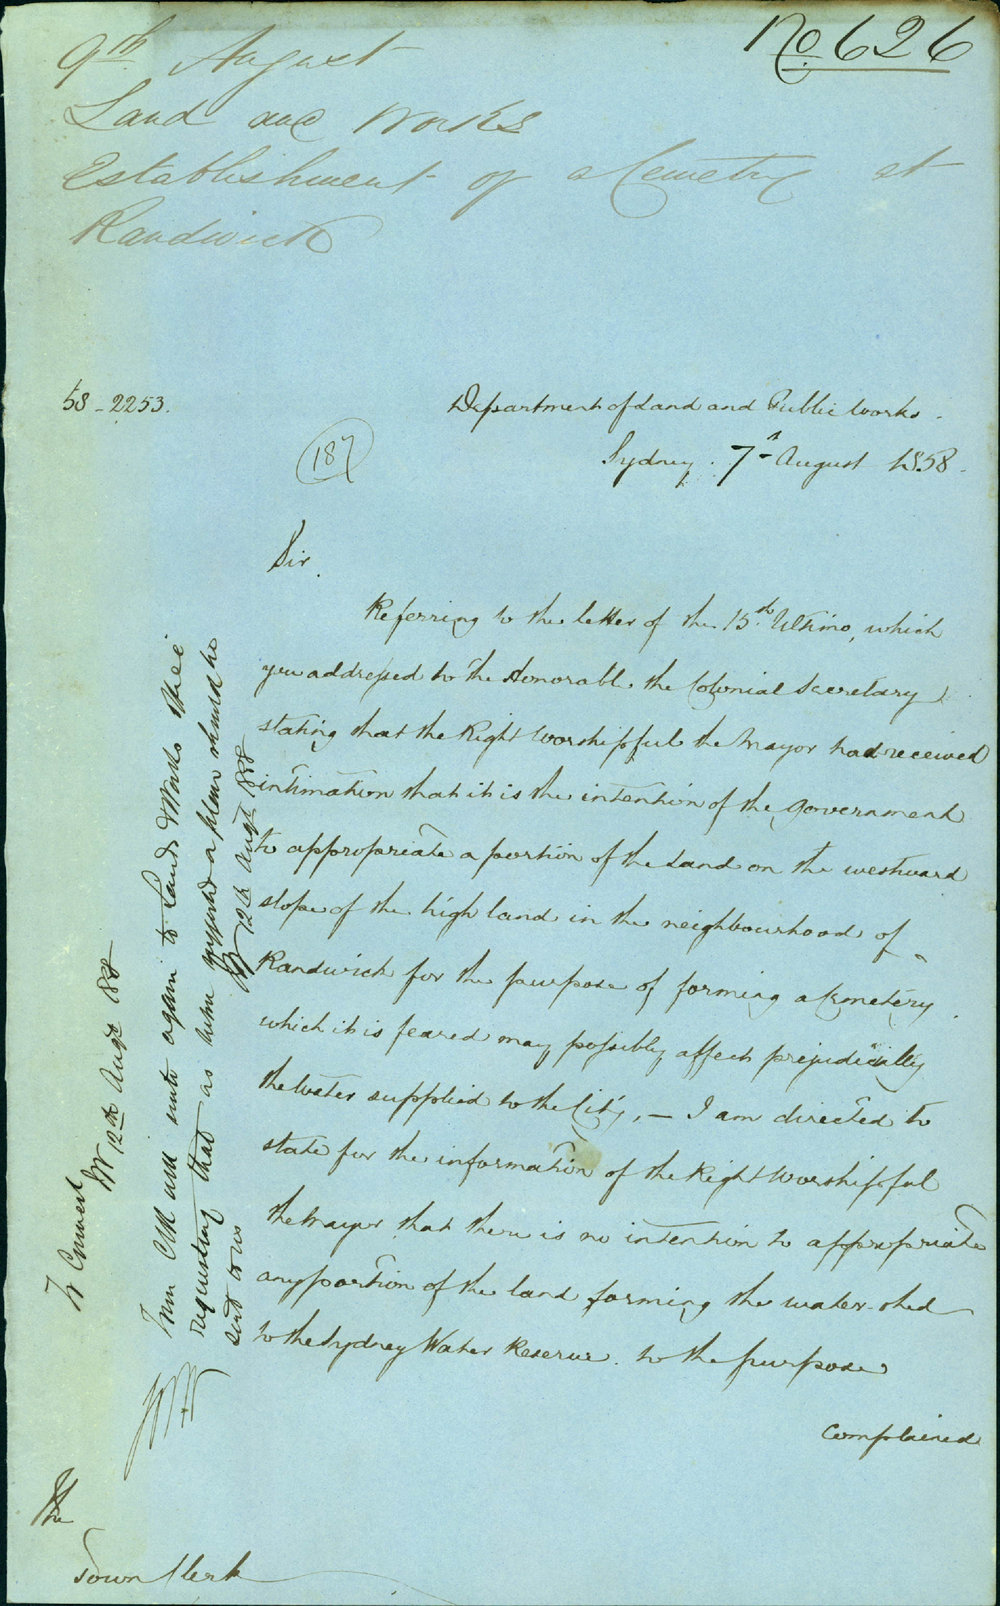 No 626
9th August
Land and Works
Establishment of a Cemetery at
Randwick
58-2253.
Department of Land and Public Works.
187
Sydney. 7th August 1858.
Sir.
Referring to the letter of the 15th Ultimo, which
you addressed to the Honorable the Colonial Secretary,
stating that the Right Worshipful the Mayor had received
intimation that it is the intention of the Government
to appropriate a portion of the Land on the westward
slope of the high land in the neighbourhood of
Randwick for the purpose of forming a Cemetery
which it is feared may possibly affect prejudicially
the Water supplied to the City, — I am directed to
state for the information of the Right Worshipful
the Mayor that there is no intention to appropriate
any portion of the land forming the water-shed
to the Sydney Water Reserve to the purpose
Complained
The
Town Clerk
Town Clk will write again to Lands & Works
requesting that as a plan should be
sent to us
12th Augt 858
12th Augt 858